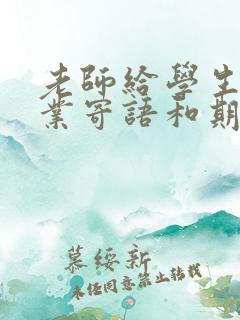 老師給學生
業寄語和期
慕綏新
未经同意禁止转载